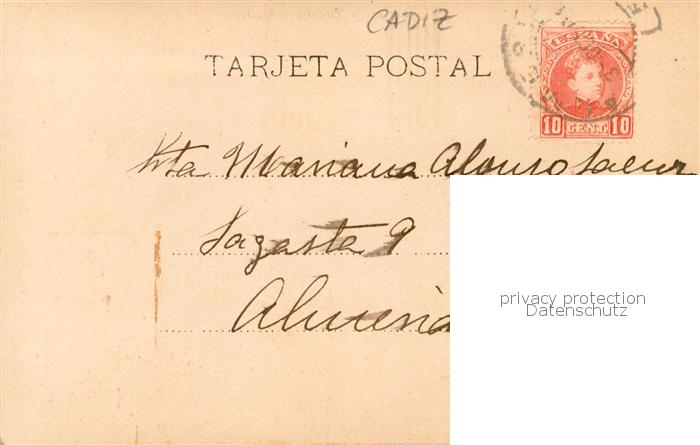 CADIZ
ESPAÑA
TARJETA POSTAL
10 CENT. 10
Srta Mariana Alonso
Sagasta 9
Almeria
privacy protection
Datenschutz